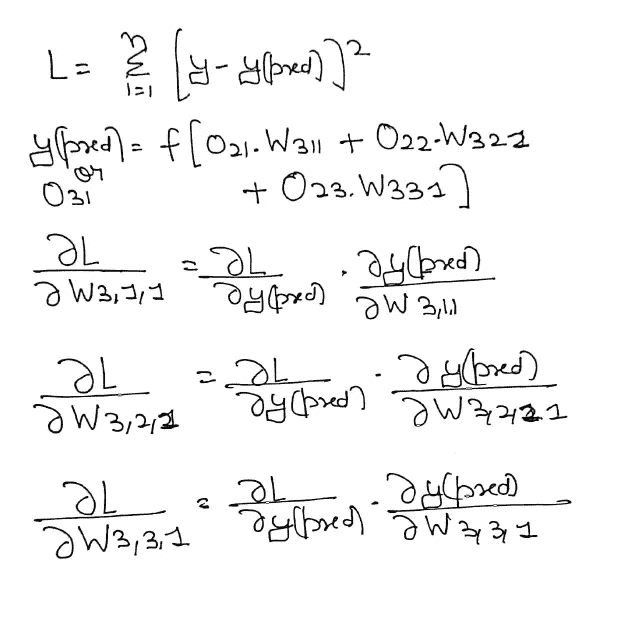 L = n Σ i=1 [y - y(pred)]²
y(pred) = f[O21.W311 + O22.W321
or
O31 + O23.W331]
∂L/∂W3,1,1 = ∂L/∂y(pred) . ∂y(pred)/∂W3,1,1
∂L/∂W3,2,1 = ∂L/∂y(pred) . ∂y(pred)/∂W3,2,1
∂L/∂W3,3,1 = ∂L/∂y(pred) . ∂y(pred)/∂W3,3,1